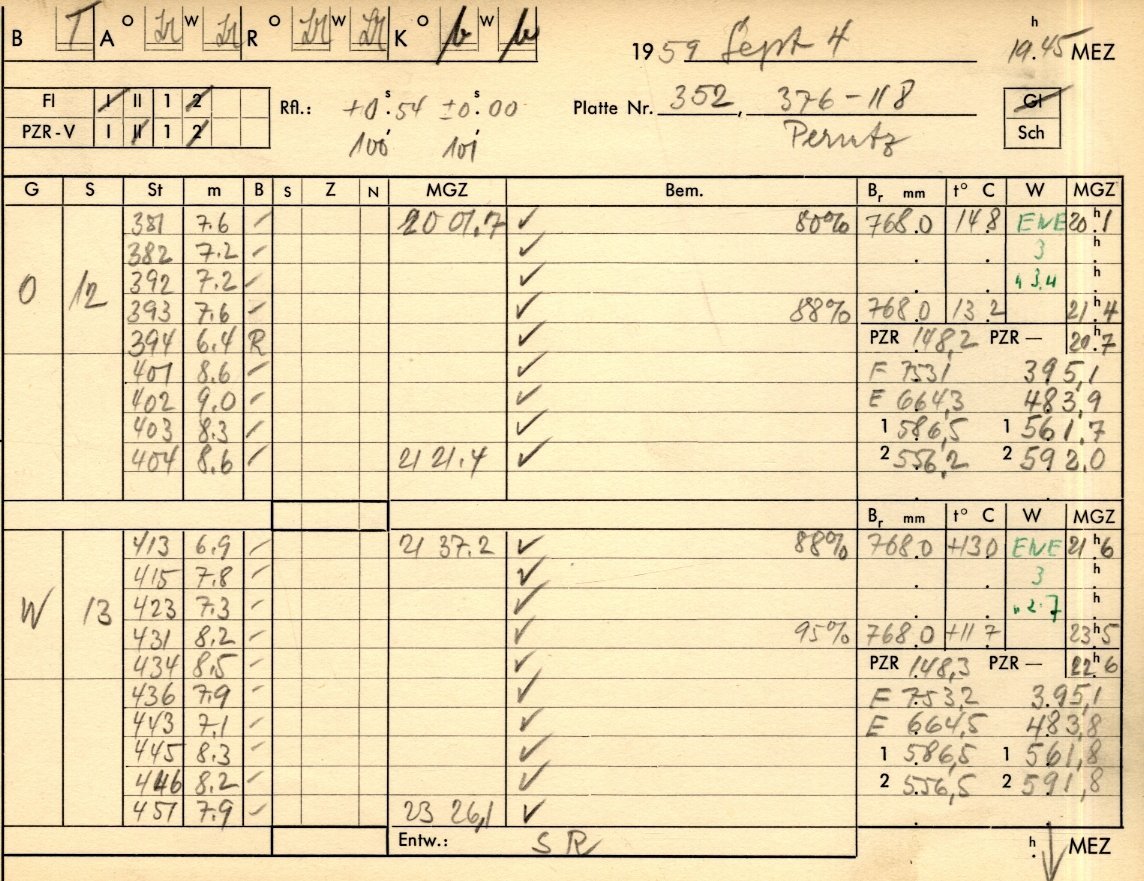 B T A O W R O W K O b W b
1959 Sept 4 19.45 h MEZ
Fl I II 1 2
PZR-V I II 1 2
Rfl.: +0.54 s ±0.00 s
100 101
Platte Nr. 352, 376-118
Perutz
Gl
Sch
G S St m B S Z N MGZ Bem. Br mm t° C W MGZ
381 7.6 20 01.7 ✓ 80% 768.0 14.8 ENE 20.1 h
382 7.2 ✓ 3 h
O 12 392 7.2 ✓ 3.4 h
393 7.6 ✓ 88% 768.0 13.2 21.4 h
394 6.4 R ✓ PZR 148,2 PZR — 20.7 h
401 8.6 ✓ F 753,1 395,1
402 9.0 ✓ E 664,3 483,9
403 8.3 ✓ 1 586,5 1 561,7
404 8.6 21 21.4 ✓ 2 556,2 2 592,0
Br mm t° C W MGZ
413 6.9 21 37.2 ✓ 88% 768.0 +13.0 ENE 21.6 h
415 7.8 ✓ 3 h
W 13 423 7.3 ✓ 2.7 h
431 8.2 ✓ 95% 768.0 +11.7 23.5 h
434 8.5 ✓ PZR 148,3 PZR — 22.6 h
436 7.9 ✓ F 753,2 395,1
443 7.1 ✓ E 664,5 483,8
445 8.3 ✓ 1 586,5 1 561,8
446 8.2 ✓ 2 556,5 2 591,8
451 7.9 23 26,1 ✓
Entw.: SR h MEZ